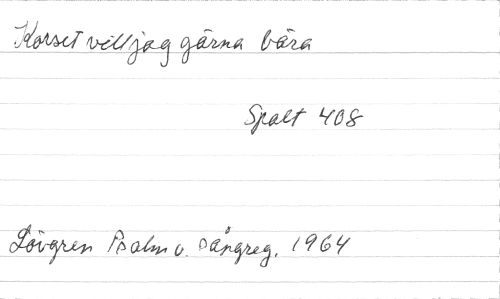 Korset vill jag gärna bära
Spalt 408
Lövgren Psalm o. sångreg. 1964